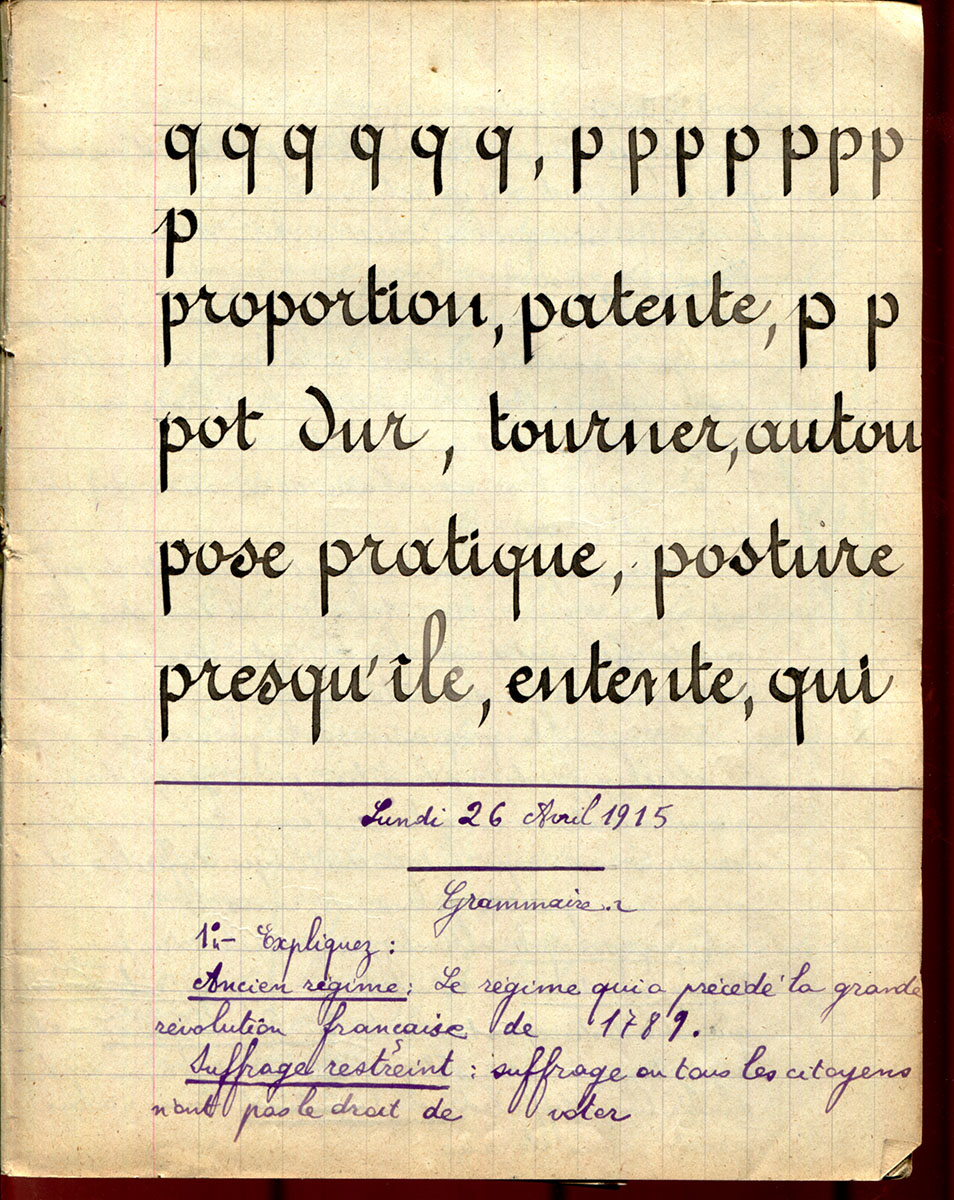 q q q q q q, p p p p p p p
p
proportion, patente, p p
pot dur, tourner, autou
pose pratique, posture
presqu'île, entente, qui
Lundi 26 Avril 1915
Grammaire.
1º.- Expliquez :
Ancien régime : Le régime qui a précédé la grande
révolution française de 1789.
Suffrage restreint : suffrage ou tous les citoyens
n'ont pas le droit de voter